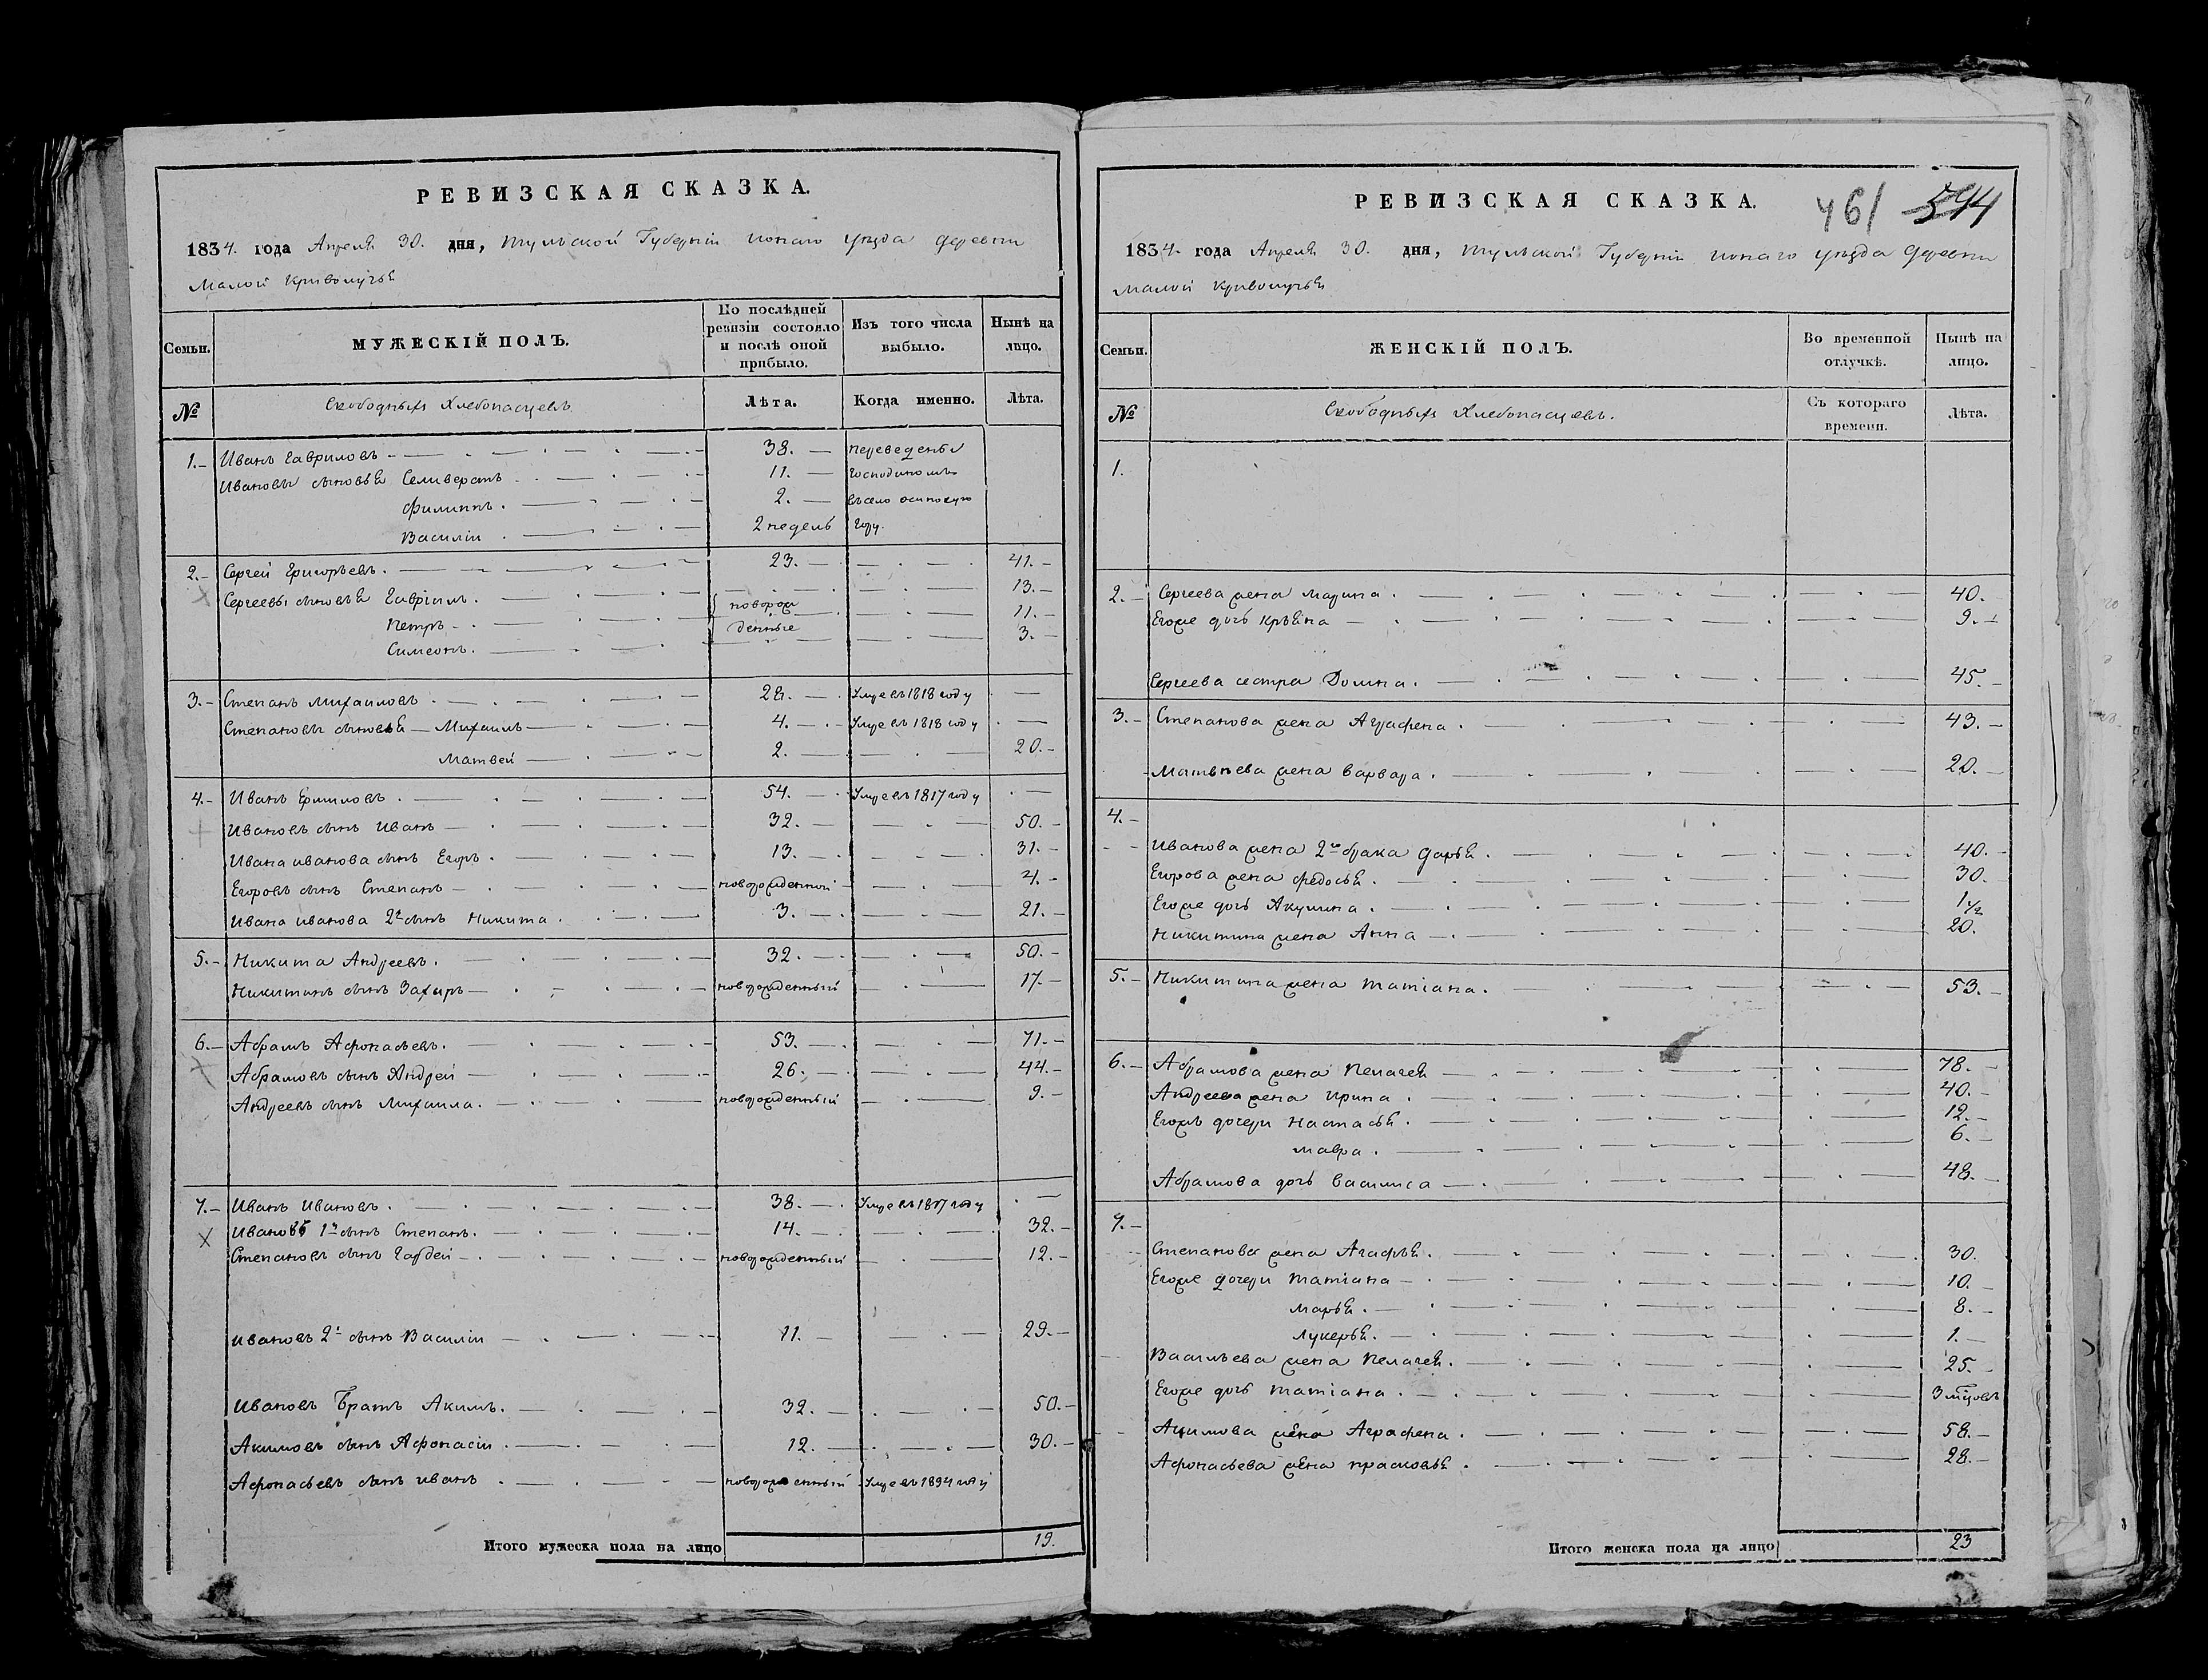 РЕВИЗСКАЯ СКАЗКА.
1834. года Апреля 30. дня, Тульской Губернiи уезда деревни
Малой Криволучья
Семьи.
МУЖЕСКІЙ ПОЛЪ.
По послѣдней ревизіи состояло и послѣ оной прибыло.
Изъ того числа выбыло.
Нынѣ на лицо.
№
Свободныхъ Хлебопасцевъ
Лѣта.
Когда именно.
Лѣта.
1.- Иванъ Гавриловъ 38. переведены
Ивановы сыновья Селиверстъ 11. Господиномъ
Филиппъ. 2. въ село осиповую
Василіи 2 недель гору.
2.- Сергей Григорьевъ. 23. 41.
Сергеевы сыновья Гавріилъ. новорож 13.
Петръ денные 11.
Симеонъ. 3.
3.- Степанъ Михаиловъ 28. Умре въ 1818 году
Степановы сыновья Михаилъ 4. Умре въ 1818 году
Матвей 2. 20.
4.- Иванъ Ермиловъ. 54. Умре въ 1817 году
Ивановъ сынъ Иванъ 32. 50.
Ивана иванова сынъ Егоръ. 13. 31.
Егоровъ сынъ Степанъ новорожденной 4.
Ивана иванова 2й сынъ Никита. 3. 21.
5.- Никита Андреевъ. 32. 50.
Никитинъ сынъ Захаръ новорожденный 17.
6.- Абрамъ Афонасьевъ. 53. 71.
Абрамовъ сынъ Андрей 26. 44.
Андреевъ сынъ Михаила. новорожденный 9.
7.- Иванъ Ивановъ. 38. Умре въ 1817 году
X Ивановъ 1й сынъ Степанъ. 14. 32.
Степановъ сынъ новорожденный 12.
Ивановъ 2й сынъ Василіи 11. 29.
Ивановъ Братъ Акимъ. 32. 50.
Акимовъ сынъ Афонасіи 12. 30.
Афонасьевъ сынъ иванъ новорожденный Умре въ 1834 году
Итого мужеска пола на лицо 19.
РЕВИЗСКАЯ СКАЗКА.
461 594
1834. года Апреля 30. дня, Тульской Губерніи уезда деревни
Малой Криволучья
Семьи.
ЖЕНСКІЙ ПОЛЪ.
Во временной отлучкѣ.
Нынѣ на лицо.
№
Свободныхъ Хлебопасцевъ.
Съ котораго времени.
Лѣта.
1.
2.- Сергеева жена Марина. 40.
Егоже дочь 9.
Сергеева сестра Домна. 45.
3.- Степанова жена Аграфена. 43.
Матвеева жена Варвара. 20.
4.-
Иванова жена 2го брака Дарья. 40.
Егорова жена Федосья. 30.
Егоже дочь Акулина. 1 1/2
Никитина жена Анна 20.
5.- Никитина жена Татіана. 53.
6.- Абрамова жена Пелагея 78.
Андреева жена Ирина. 40.
Егожъ дочери Настасья. 12.
Мавра. 6.
Абрамова дочь Василиса 48.
7.-
Степанова жена Агафья. 30.
Егоже дочери Татіана 10.
Марья. 8.
Лукерья. 1.
Васильева жена Пелагея. 25.
Егоже дочь Татіана. 3 мцовъ
Акимова жена Аграфена. 58.
Афонасьева жена Прасковья. 28.
Итого женска пола на лицо 23